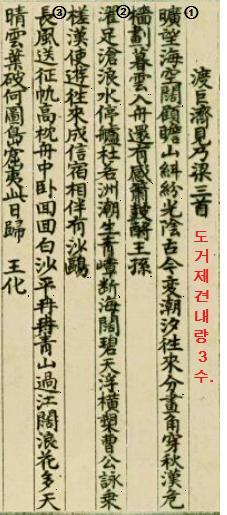 渡巨濟見乃梁三首
①
曠望海空闊顧瞻山糾紛光陰古今変潮汐往來分畫角穿秋漢危
檣劃暮雲入舟還有感簫鼓酹王孫
②
濯足滄浪水停艫杜若洲潮生青嶂断海闊碧天浮橫槊曹公詠乗
槎漢使遊往來成信宿相伴有沙鷗
③
長風送征帆高枕舟中卧回回白沙平冉冉青山過江闊浪花多天
晴雲葉破何圖島窟夷此日歸 王化
도거제견내량3수.